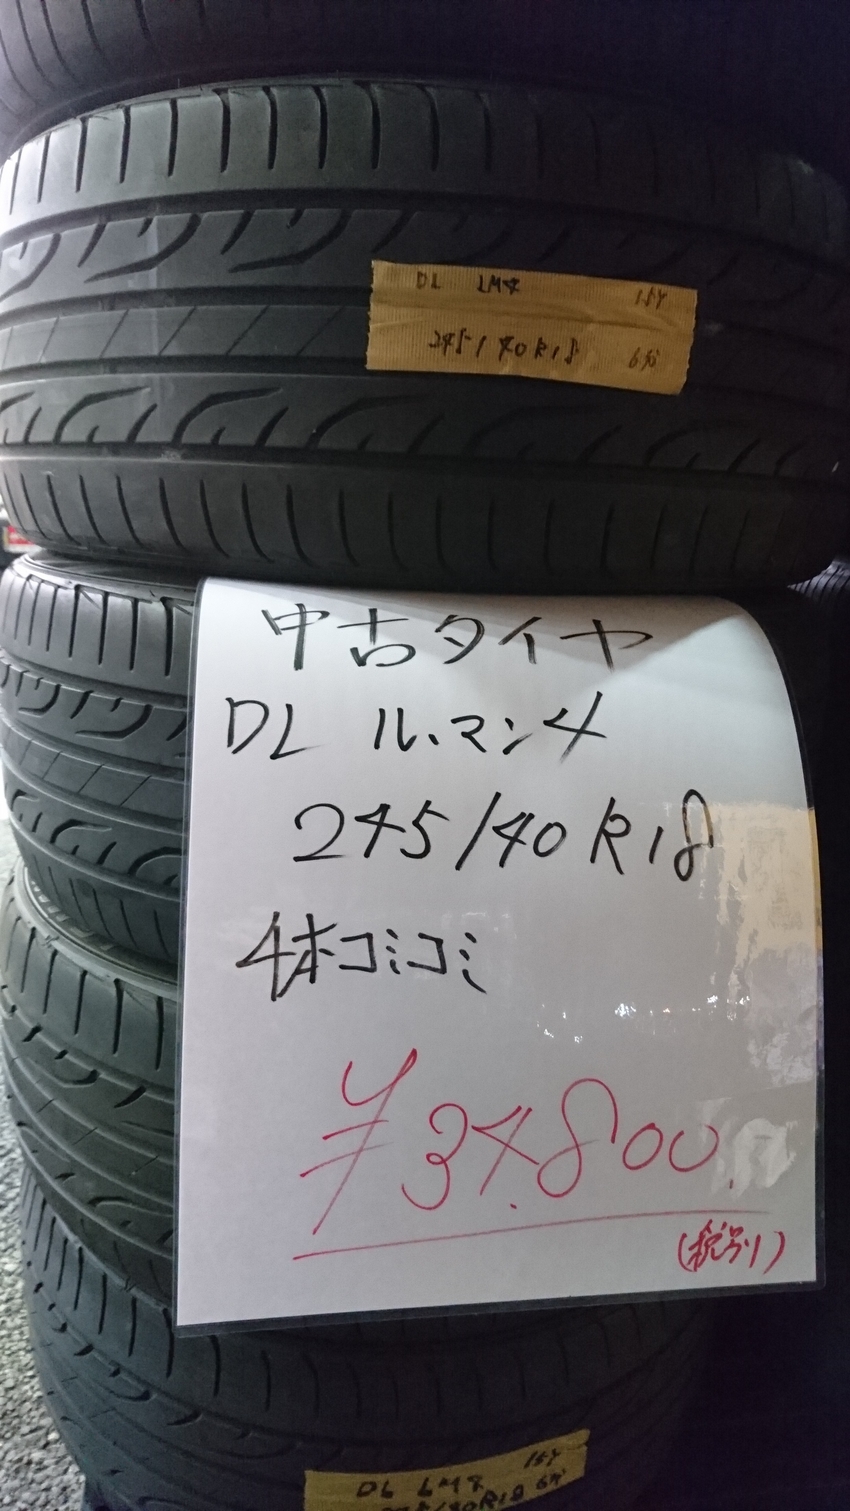 DL LM4 15Y
245/40R18 6分
中古タイヤ
DL ル・マン4
245/40R18
4本コミコミ
¥34.800.
(税別)
DL LM4 15Y
245/40R18 6分